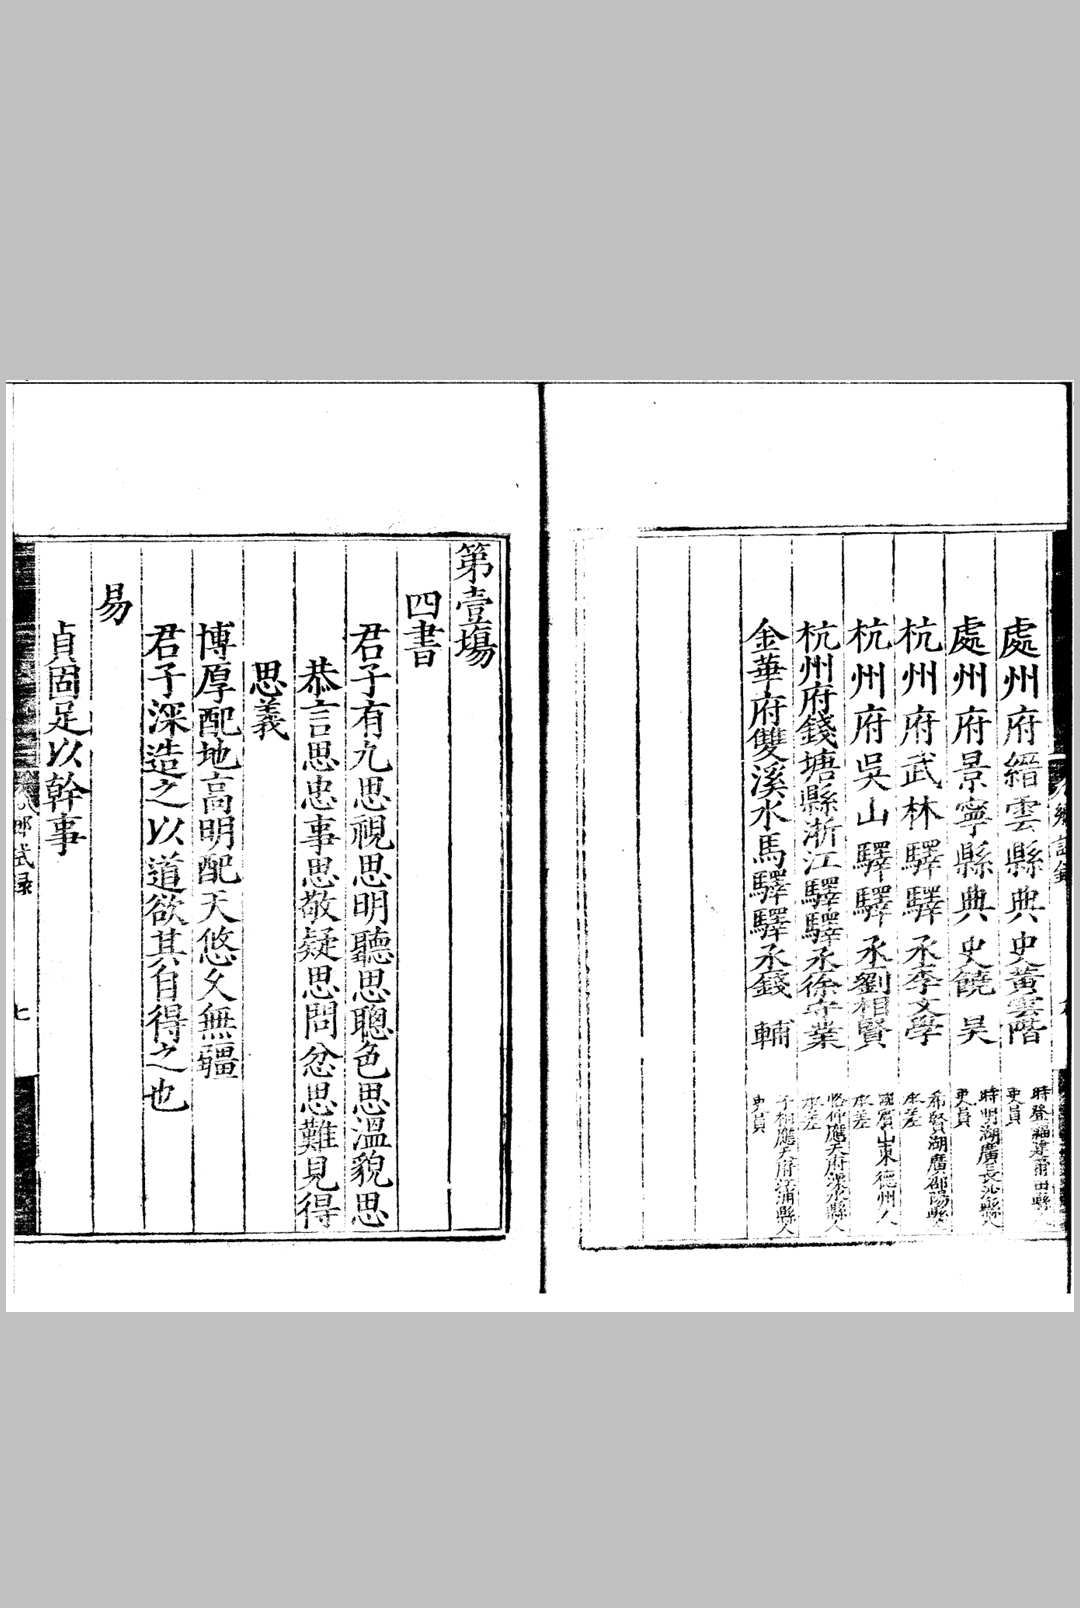 處州府縉雲縣典史黃雲階
時登福建莆田縣人
吏員
處州府景寧縣典史饒昊
時明湖廣長沙縣人
吏員
杭州府武林驛驛丞李文學
希賢湖廣邵陽縣人
承差
杭州府吳山驛驛丞劉相賢
國賓山東德州人
承差
杭州府錢塘縣浙江驛驛丞徐守業
應天府溧水縣人
承差
金華府雙溪水馬驛驛丞錢輔
應天府江浦縣人
吏員
第壹塲
四書
君子有九思視思明聽思聰色思溫貌思
恭言思忠事思敬疑思問忿思難見得
思義
博厚配地高明配天悠久無疆
君子深造之以道欲其自得之也
易
貞固足以幹事
試録
七